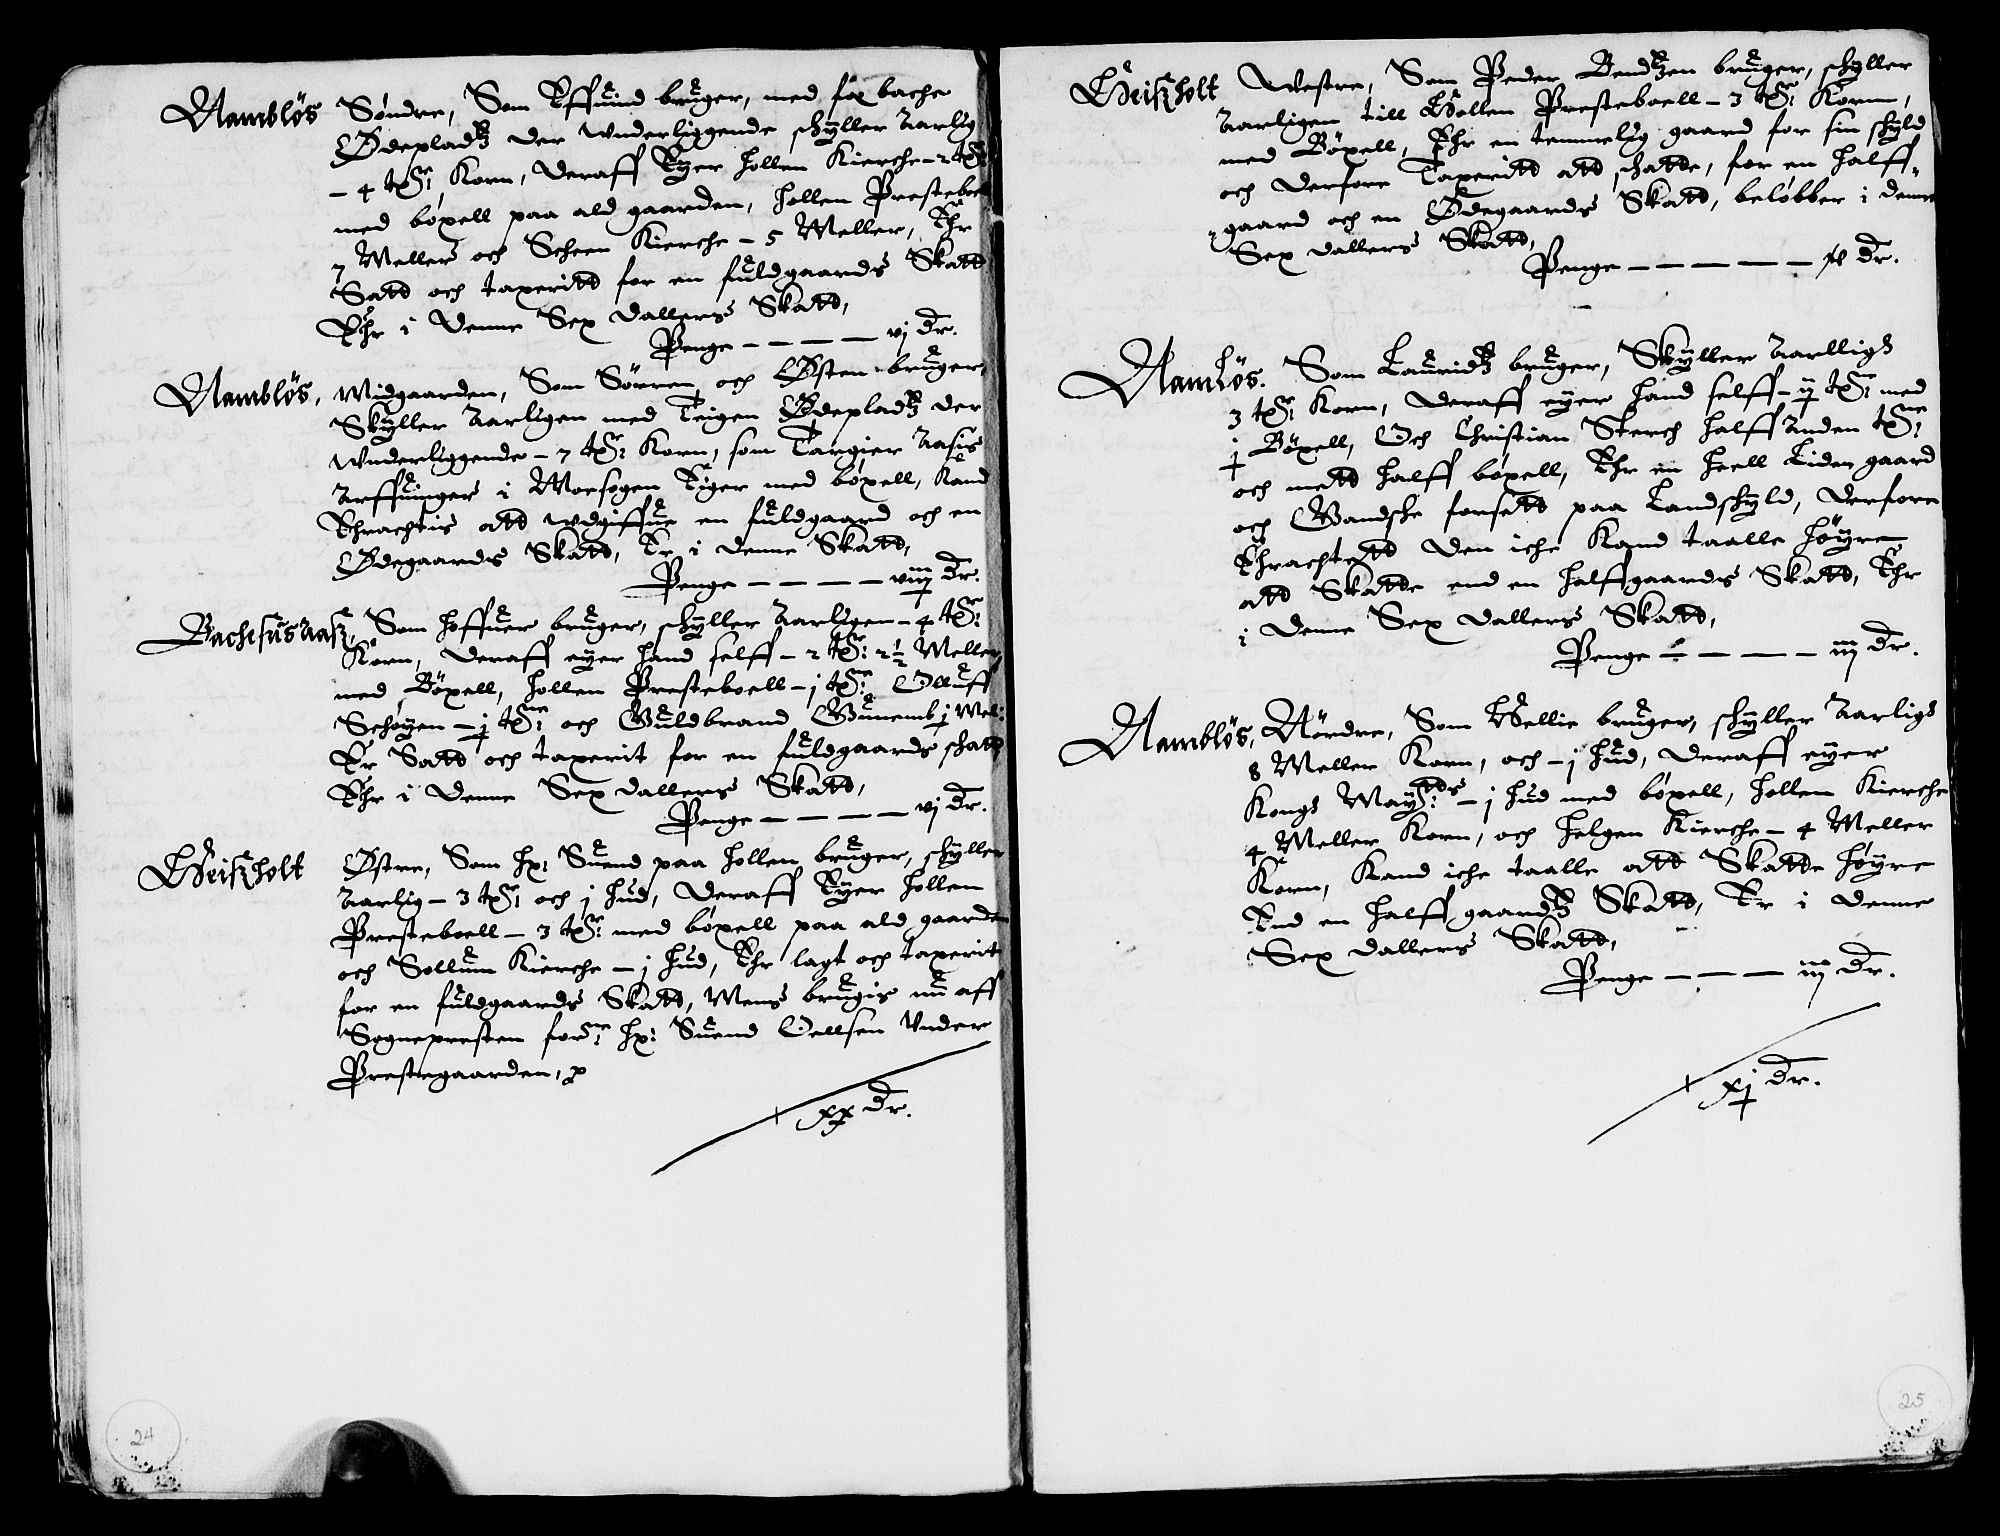 Nambløs Søndre, Som Effuind bruger, med fox bache
Ødepladtz der wnderliggende schyller Aarlig
– 4 tdr: Korn, deraff Eyer Hollen Kierche – 2 tdr:
med bøxell paa ald gaarden, Hollen Presteboell
7 Meller och Scheen Kierche – 5 Meller, Ehr
Satt och taxeritt for en fuldgaards Skatt
Ehr i denne Sex dallers Skatt,
Penge – – – – – vj Dr.
Nambløs, Midgaarden, Som Sørren och Østen bruger,
Skyller Aarligen med Teigen Ødepladtz der
wnderliggende – 7 tdr: Korn, som Targier Aasis
Arffuinger i Morsogen Eiger med bøxell, Kand
Ehrachtis att wdgiffue en fuldgaard och en
Ødegaards Skatt, Er i denne Skatt,
Penge – – – – viij Dr.
Bachesus Aass, Som Hoffuer bruger, schyller Aarligen – 4 tdr:
Korn, deraff eyer hand selff – 2 tdr: 2½ Meller,
med Bøxell, Hollen Presteboell – j tdr: Olluff
Schøyen – j tdr: och Guldbrand Gunemb j Mel:
Er Satt och taxerit for en fuldgaards schatt
Ehr i denne Sex dallers Skatt,
Penge – – – – vj Dr.
Geiszholt Østre, Som Hr: Suend paa Hollen bruger, schyller
Aarlig – 3 tdr: och j Hud, deraff Eyer Hollen
Presteboell – 3 tdr: med bøxell paa ald gaarden
och Sollum Kierche – j Hud, Ehr lagt och taxerit
for en fuldgaards Skatt, Mens brugis nu aff
Sognepresten forne: Hr: Suend Oellsen Vnder
Prestegaarden,
xx Dr.
24
Geiszholt Westre, Som Peder Bendtzen bruger, schyller
Aarligen till Hollen Presteboell – 3 tdr: Korn,
med Bøxell, Ehr en temmelig gaard for sin schyld
och derfore Taxeritt att schatte, for en Halff-
gaard och en Ødegaards Skatt, beløbber i denne
Sex dallers Skatt,
Penge – – – – – Dr.
Namløs. Som Lauridtz bruger, Skyller Aarlligs
3 tdr: Korn, deraff eyer hand selff – ij tdr: med
j Bøxell, Och Christian Sterch Halff Anden tdr:
och mett Halff bøxell, Ehr en Heell Liden gaard
och Wandsche forsett paa Landschyld, derfore
Ehrachtett den iche Kand taalle Høyre
att Skatte end en Halffgaards Skatt, Ehr
i denne Sex dallers Skatt,
Penge – – – – iij Dr.
Nambløs, Nørdre, Som Hellie bruger, schyller Aarligs
8 Meller Korn, och – j Hud, deraff eyer
Kongs Maytts: – j Hud med bøxell, Hollen Kierche
4 Meller Korn, och Helgen Kierche – 4 Meller
Korn, Kand iche taalle att Skatte Høyre
End en Halff gaardtz Skatt, Er i denne
Sex dallers Skatt,
Penge – – – iij Dr.
xj Dr.
25